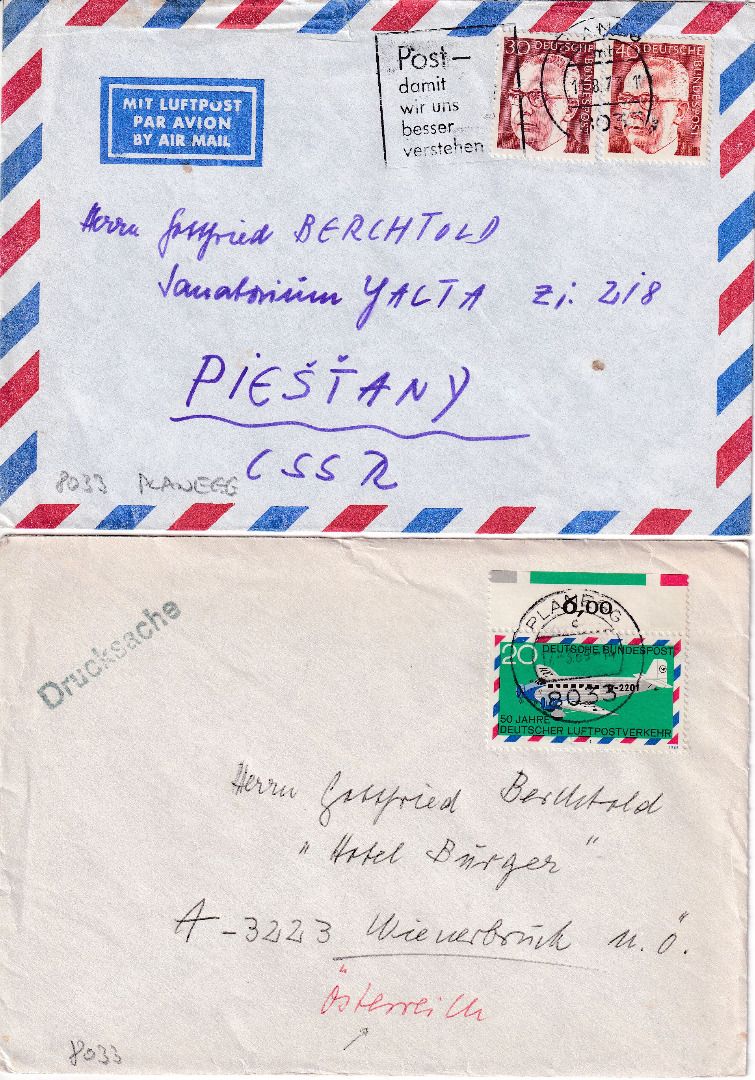 Post—
damit
wir uns
besser
verstehen
30 DEUTSCHE BUNDESPOST
40 DEUTSCHE BUNDESPOST
MIT LUFTPOST
PAR AVION
BY AIR MAIL
Herrn Gottfried BERCHTOLD
Sanatorium YALTA Zi. 218
PIEŠŤANY
CSSR
8033 PLANEGG
Drucksache
0,00
PLANEGG
c
8033
20 DEUTSCHE BUNDESPOST
D-2201
50 JAHRE
DEUTSCHER LUFTPOSTVERKEHR
Herrn Gottfried Berchtold
"Hotel Burger"
A-3223 Wienerbruck N.Ö.
Österreich
8033